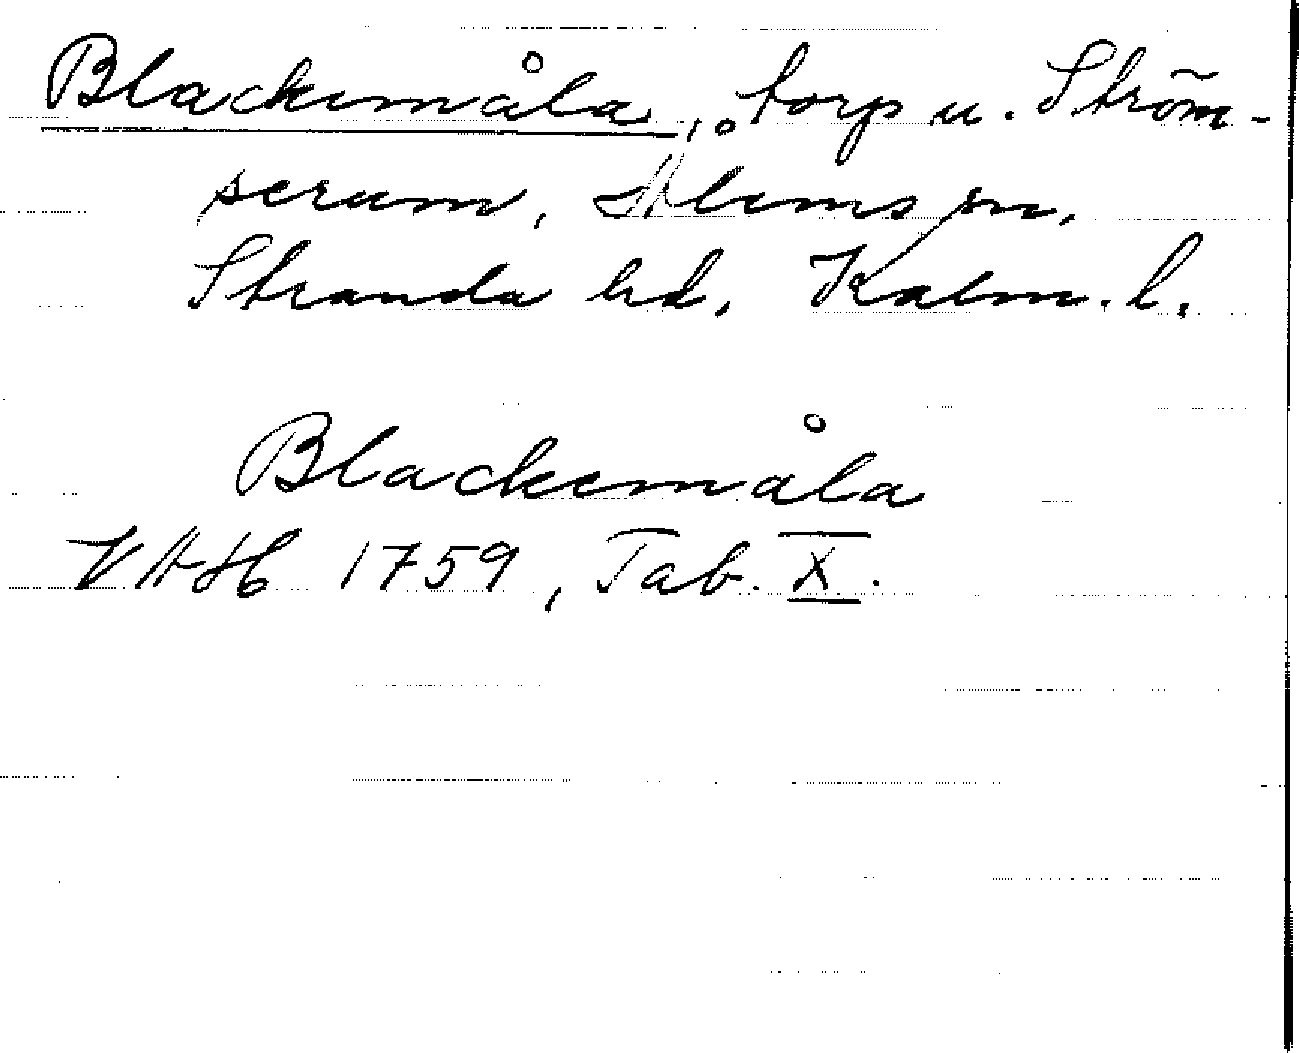 Blackemåla, torp u. Ström-
serum, Ålems sn,
Stranda hd, Kalm. l.
Blackemåla
VAH 1759, Tab. X.